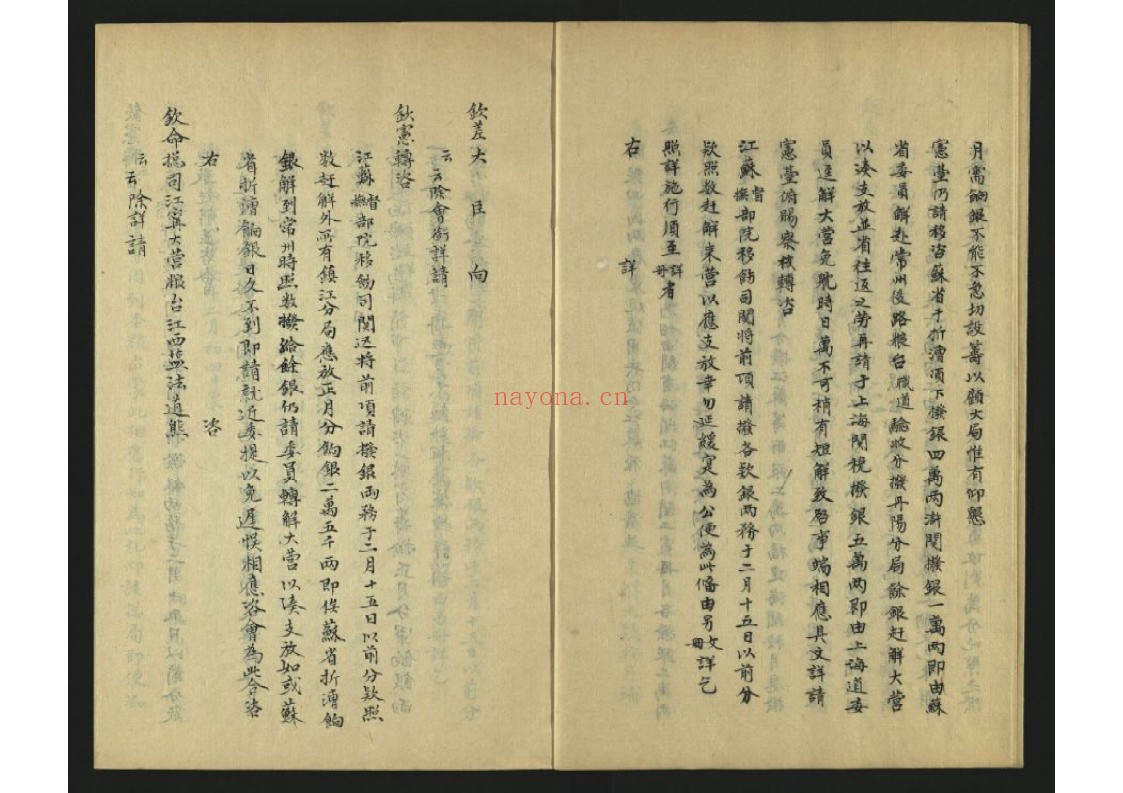 月需餉銀不能不急切設籌以顧大局惟有仰懇
憲臺仍請移咨蘇省于折漕項下撥銀四萬兩滸関撥銀一萬兩即由蘇
省委員解赴常州後路粮台職道驗收分撥丹陽分局餘銀赶解大營
以湊支放並省往返之勞再請于上海関稅撥銀五萬兩即由上海道委
員逕解大營免躭時日萬不可稍有短解致啓事端相應具文詳請
憲臺俯賜察核轉咨
江蘇督撫部院移飭司関將前項請撥各欵銀兩務于二月十五日以前分
欵照数赶解來營以應支放幸勿延緩寔為公便為此俻由另文冊詳乞
照詳施行須至詳冊者
右　詳
欽差大臣向
云云除會銜詳請
欽憲轉咨
江蘇督撫部院移飭司関迅將前項請撥銀兩務于二月十五日以前分欵照
数赶解外所有鎮江分局應放正月分餉銀二萬五千兩即俟蘇省折漕餉
銀解到常州時照数撥給餘銀仍請委員轉解大營以湊支放如或蘇
省折漕餉銀日久不到即請就近委提以免遲悞相應咨會為此合咨
右　咨
欽命總司江寕大營粮台江西盐法道熊
云云除詳請
nayona.cn